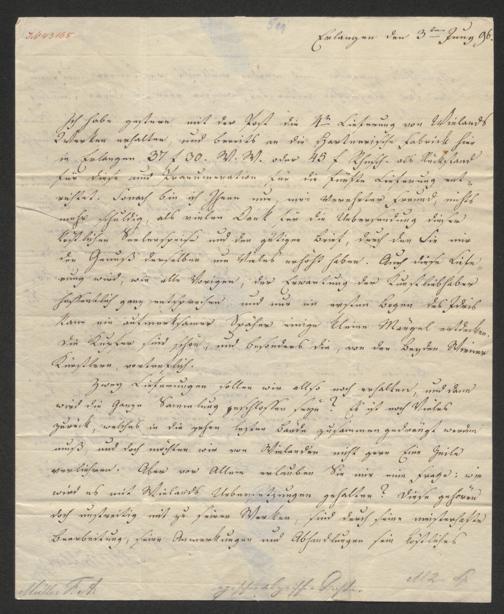 Erlangen den 3ten Juny 96.
Ich habe gestern mit der Post die 4te Lieferung von Wielands
Werken erhalten, und bereits an die Hartnerische Fabrick hier
in Erlangen 37 f 30. W. W. oder 45 f Rheinl. als Rückstand
für diese und Pränumeration für die fünfte Lieferung ent-
richtet. Sonach bin ich Ihnen nun, mein verehrter Freund, nichts
mehr schuldig, als vielen Dank für die Uebersendung dieser
köstlichen Seelenspeise und den gütigen Brief, durch den Sie mir
den Genuß derselben um Vieles erhöht haben. Auch diese Liefe-
rung wird, wie alle vorigen, der Erwartung der Kunstliebhaber
hoffentlich ganz entsprechen, und nur im ersten Bogen des Idris
kann ein aufmerksamer Späher einige kleine Mängel entdecken.
Die Kupfer sind schön, und besonders die, von den beyden Wiener
Künstlern, vortrefflich.
Zwey Lieferungen sollen wir also noch erhalten, und dann
wird die Ganze Sammlung geschlossen seyn? Es ist noch Vieles
zurück, welches in die zehen lezten Bände zusammen gedrängt werden
muß, und doch möchten wir von Wielanden nicht gern Eine Zeile
verlieren. Aber vor Allem erlauben Sie mir eine Frage: wie
wird es mit Wielands Uebersetzungen gehalten? Diese gehören
doch unstreitig mit zu seinen Werken, sind durch seine meisterhafte
Bearbeitung, seine Anmerkungen und Abhandlungen sein köstliches